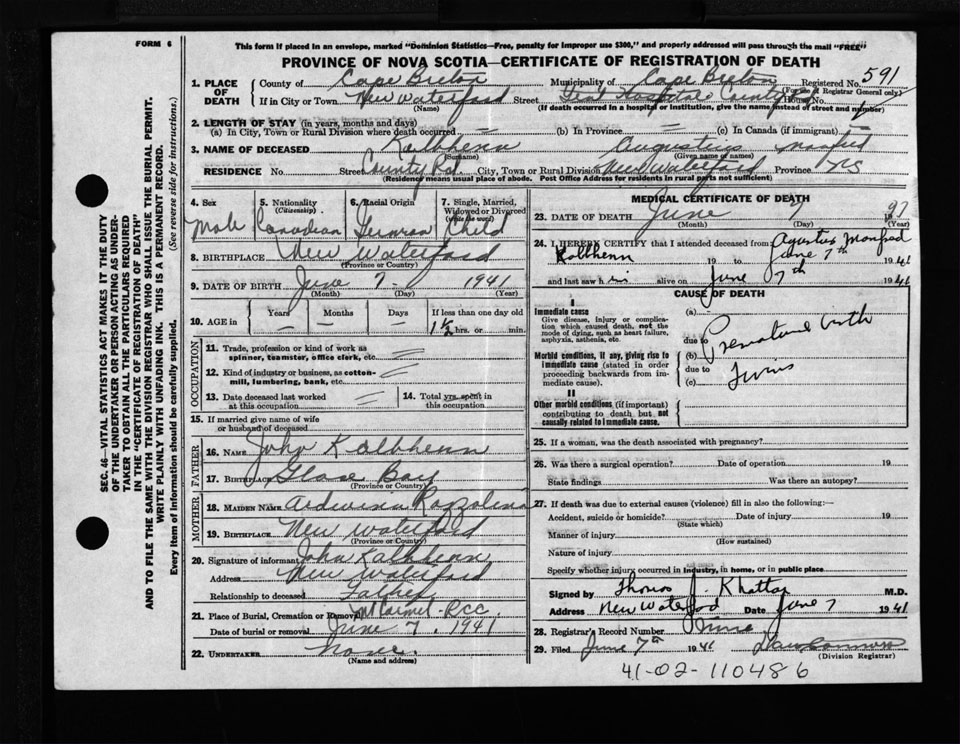 FORM 6
This form if placed in an envelope, marked "Dominion Statistics—Free, penalty for improper use $300," and properly addressed will pass through the mail "FREE"
PROVINCE OF NOVA SCOTIA—CERTIFICATE OF REGISTRATION OF DEATH
1. PLACE OF DEATH County of Cape Breton Municipality of Cape Breton Registered No. 591
(For use of Registrar General only)
If in City or Town New Waterford Street Hospital County Rd House No.
(Name) (If death occurred in a hospital or institution, give the name instead of street and number)
2. LENGTH OF STAY (in years, months and days)
(a) In City, Town or Rural Division where death occurred (b) In Province (c) In Canada (if immigrant)
3. NAME OF DECEASED Kalbhenn Augustus Manfred
(Surname) (Given name or names)
RESIDENCE No. Street County Rd. City, Town or Rural Division New Waterford Province NS
(Residence means usual place of abode. Post Office Address for residents in rural parts not sufficient)
4. Sex Male
5. Nationality (Citizenship) Canadian
6. Racial Origin German
7. Single, Married, Widowed or Divorced (write the word) Child
8. BIRTHPLACE New Waterford
(Province or Country)
9. DATE OF BIRTH June 7 - 1941
(Month) (Day) (Year)
10. AGE in Years Months Days If less than one day old
1 1/2 hrs. or min.
OCCUPATION
11. Trade, profession or kind of work as spinner, teamster, office clerk, etc.
12. Kind of industry or business, as cotton-mill, lumbering, bank, etc.
13. Date deceased last worked at this occupation 14. Total yrs. spent in this occupation
15. If married give name of wife or husband of deceased
FATHER
16. NAME John Kalbhenn
17. BIRTHPLACE Glace Bay
(Province or Country)
MOTHER
18. MAIDEN NAME
19. BIRTHPLACE New Waterford
(Province or Country)
20. Signature of informant John Kalbhenn
Address New Waterford
Relationship to deceased Father
21. Place of Burial, Cremation or Removal Mt Carmel - Rcc
Date of burial or removal June 7. 1941
22. UNDERTAKER None
(Name and address)
MEDICAL CERTIFICATE OF DEATH
23. DATE OF DEATH June 7
(Month) (Day) (Year)
24. I HEREBY CERTIFY that I attended deceased from Agustus Manfred
Kalbhenn 19 to June 7th 1941
and last saw h im alive on June 7th 1941
CAUSE OF DEATH
I
Immediate cause
Give disease, injury or complication which caused death, not the mode of dying, such as heart failure, asphyxia, asthenia, etc.
(a)
due to Premature birth
Morbid conditions, if any, giving rise to immediate cause (stated in order proceeding backwards from immediate cause).
(b)
due to
(c) Twins
II
Other morbid conditions (if important) contributing to death but not causally related to immediate cause.
25. If a woman, was the death associated with pregnancy?
26. Was there a surgical operation? Date of operation 19
State findings Was there an autopsy?
27. If death was due to external causes (violence) fill in also the following:—
Accident, suicide or homicide? Date of injury 19
(State which)
Manner of injury
(How sustained)
Nature of injury
Specify whether injury occurred in industry, in home, or in public place
Signed by Thomas J. Khattar M.D.
Address New Waterford Date June 7 1941
28. Registrar's Record Number
29. Filed June 7th 1941
(Division Registrar)
41-02-110486
SEC. 46—VITAL STATISTICS ACT MAKES IT THE DUTY
OF THE UNDERTAKER OR PERSON ACTING AS UNDER-
TAKER TO OBTAIN ALL THE PARTICULARS REQUIRED
IN THE "CERTIFICATE OF REGISTRATION OF DEATH"
AND TO FILE THE SAME WITH THE DIVISION REGISTRAR WHO SHALL ISSUE THE BURIAL PERMIT.
WRITE PLAINLY WITH UNFADING INK. THIS IS A PERMANENT RECORD.
Every item of information should be carefully supplied. (See reverse side for instructions.)